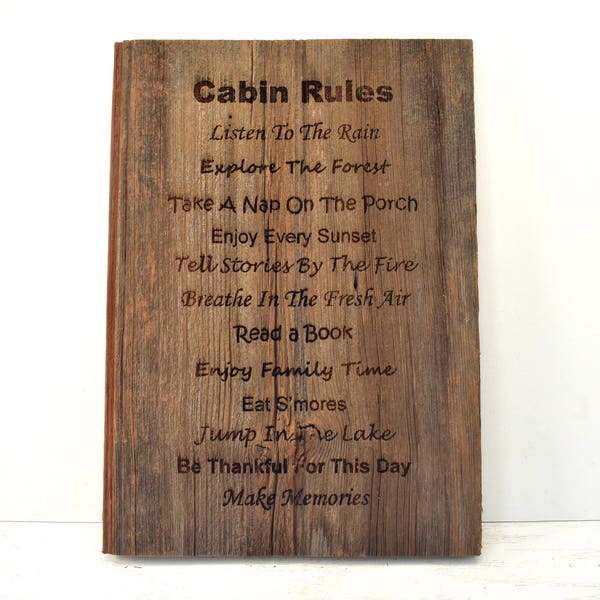 Cabin Rules
Listen To The Rain
Explore The Forest
Take A Nap On The Porch
Enjoy Every Sunset
Tell Stories By The Fire
Breathe In The Fresh Air
Read a Book
Enjoy Family Time
Eat S'mores
Jump In The Lake
Be Thankful For This Day
Make Memories